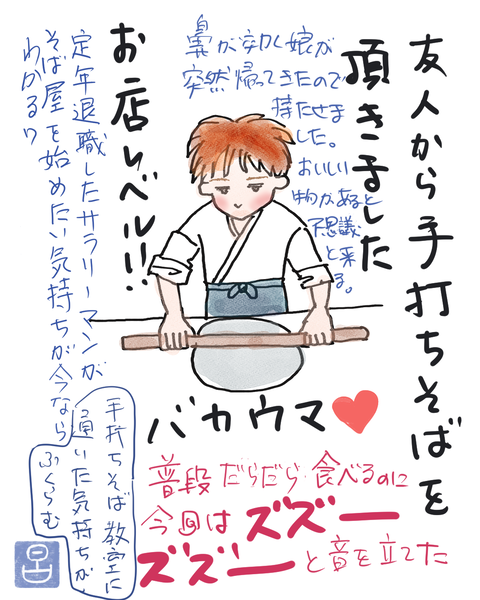 友人から手打ちそばを
頂きました
鼻が効く娘が
突然帰ってきたので
持たせま
した。
おいしい
物があると
不思議
と来る。
お店レベル!!
定年退職したサラリーマンが
そば屋を始めたい気持ちが今なら
わかるわ
手打ちそば教室に
通いた気持ちが
ふくらむ
バカウマ♥
普段だらだら食べるのに
今回はズズー
ズズーと音を立てた